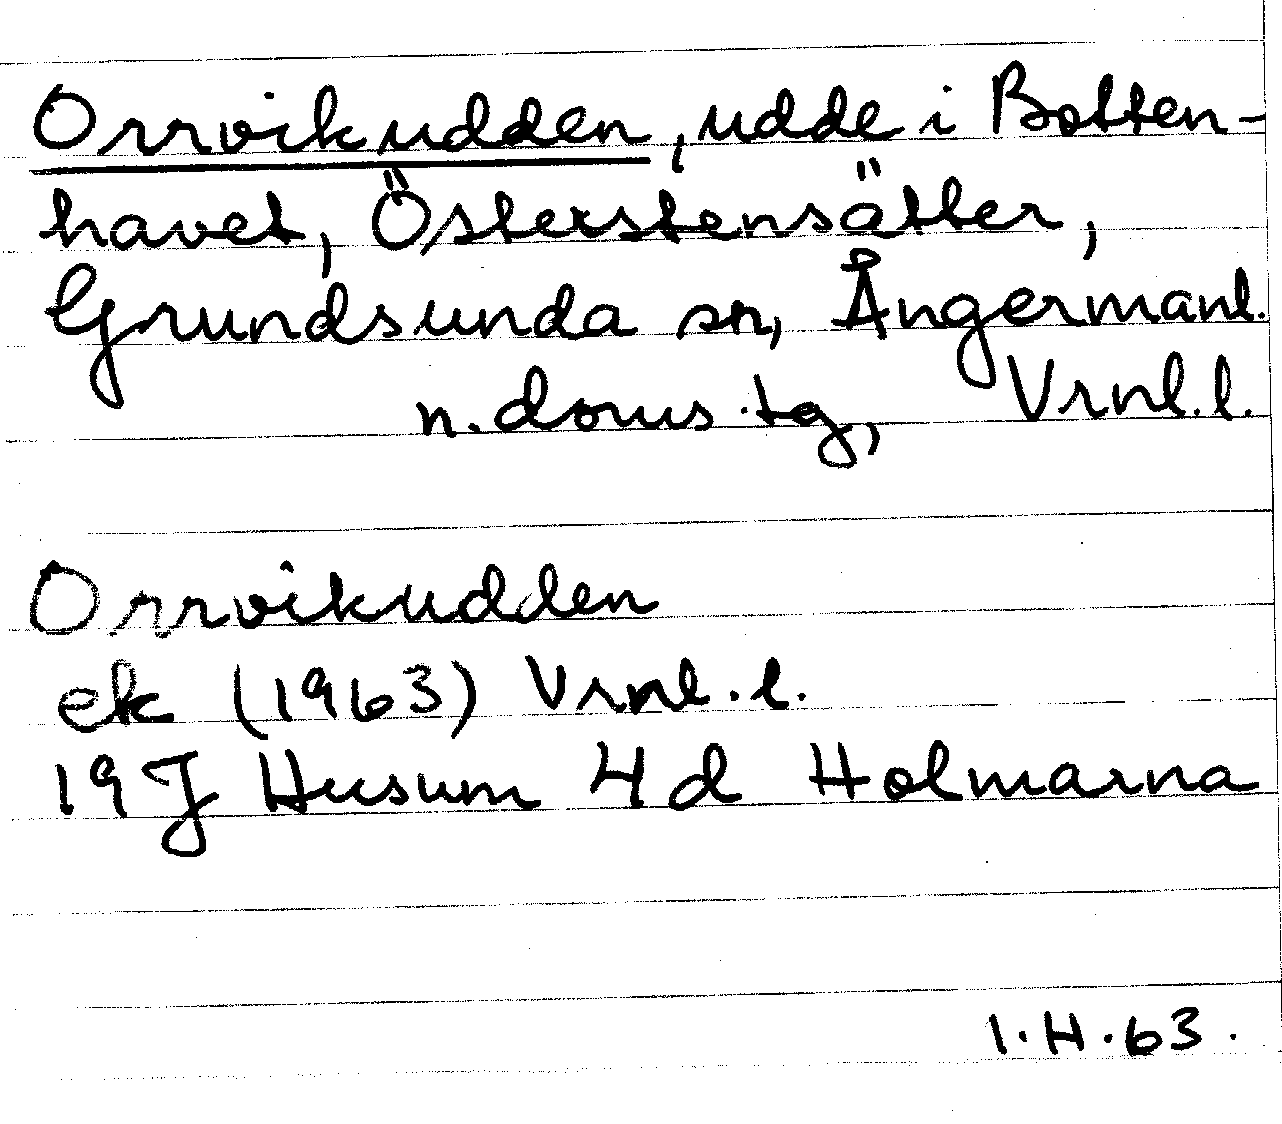 Orrvikudden, udde i Botten-
havet, Österstensätter,
Grundsunda sn, Ångermanl.
n. doms.tg, Vrnl.l.
Orrvikudden
ek (1963) Vrnl.l.
19J Husum 4d Holmarna
I.H.63.